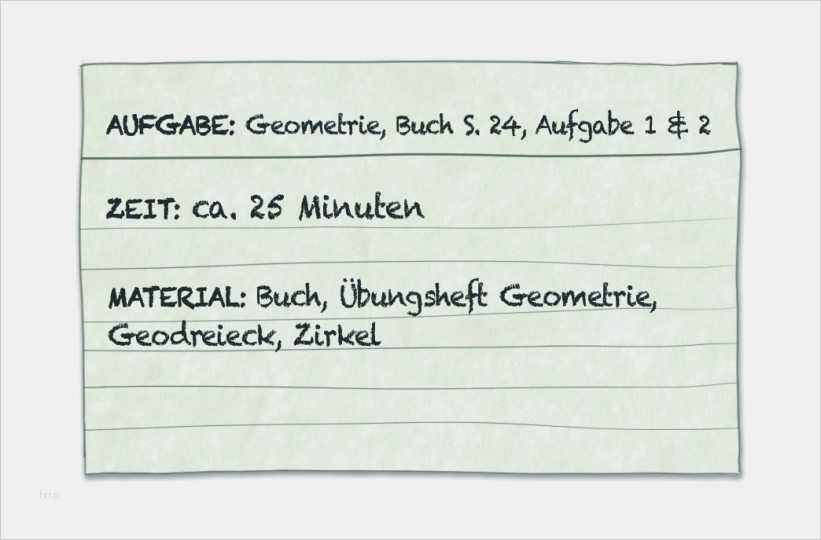 AUFGABE: Geometrie, Buch S. 24, Aufgabe 1 & 2
ZEIT: ca. 25 Minuten
MATERIAL: Buch, Übungsheft Geometrie,
Geodreieck, Zirkel